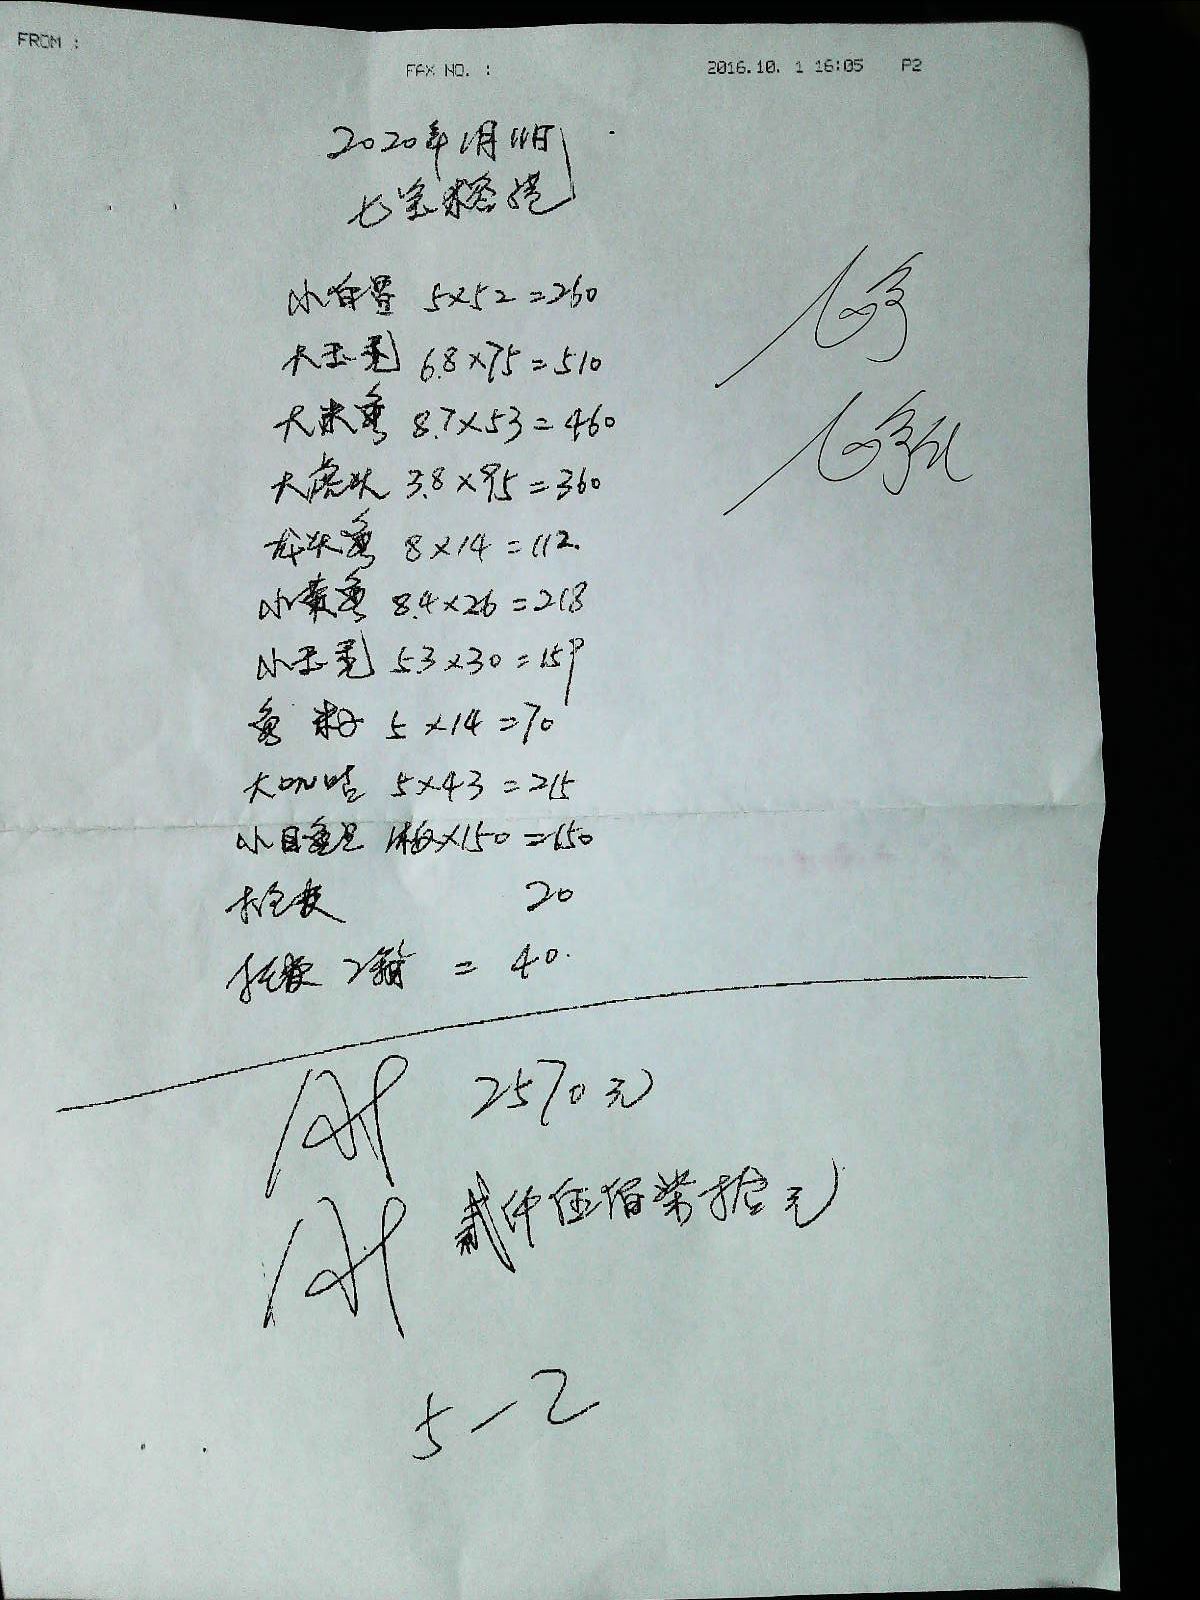 FROM :
FAX NO. :
2016.10. 1 16:05 P2
2020年1月11日
七宝
小白 5×52=260
大玉秃 6.8×75=510
大米鱼 8.7×53=460
大虎头 3.8×95=360
龙头鱼 8×14=112.
小黄鱼 8.4×26=218
小玉秃 53×30=159
鱼籽 5×14=70
大 5×43=215
小目鱼 1板×150=150
20
2箱 = 40.
2570元
贰仟伍佰柒拾元
5-2